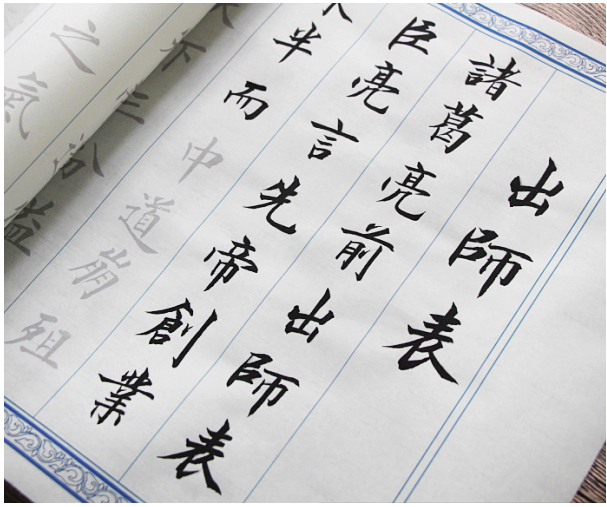 出師表
諸葛亮前出師表
臣亮言先帝創業
半而中道崩殂
下三分益
之氣